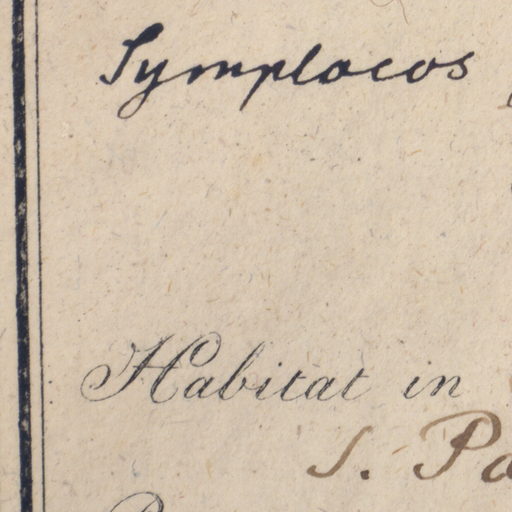 Symplocos
Habitat in
S. Pa